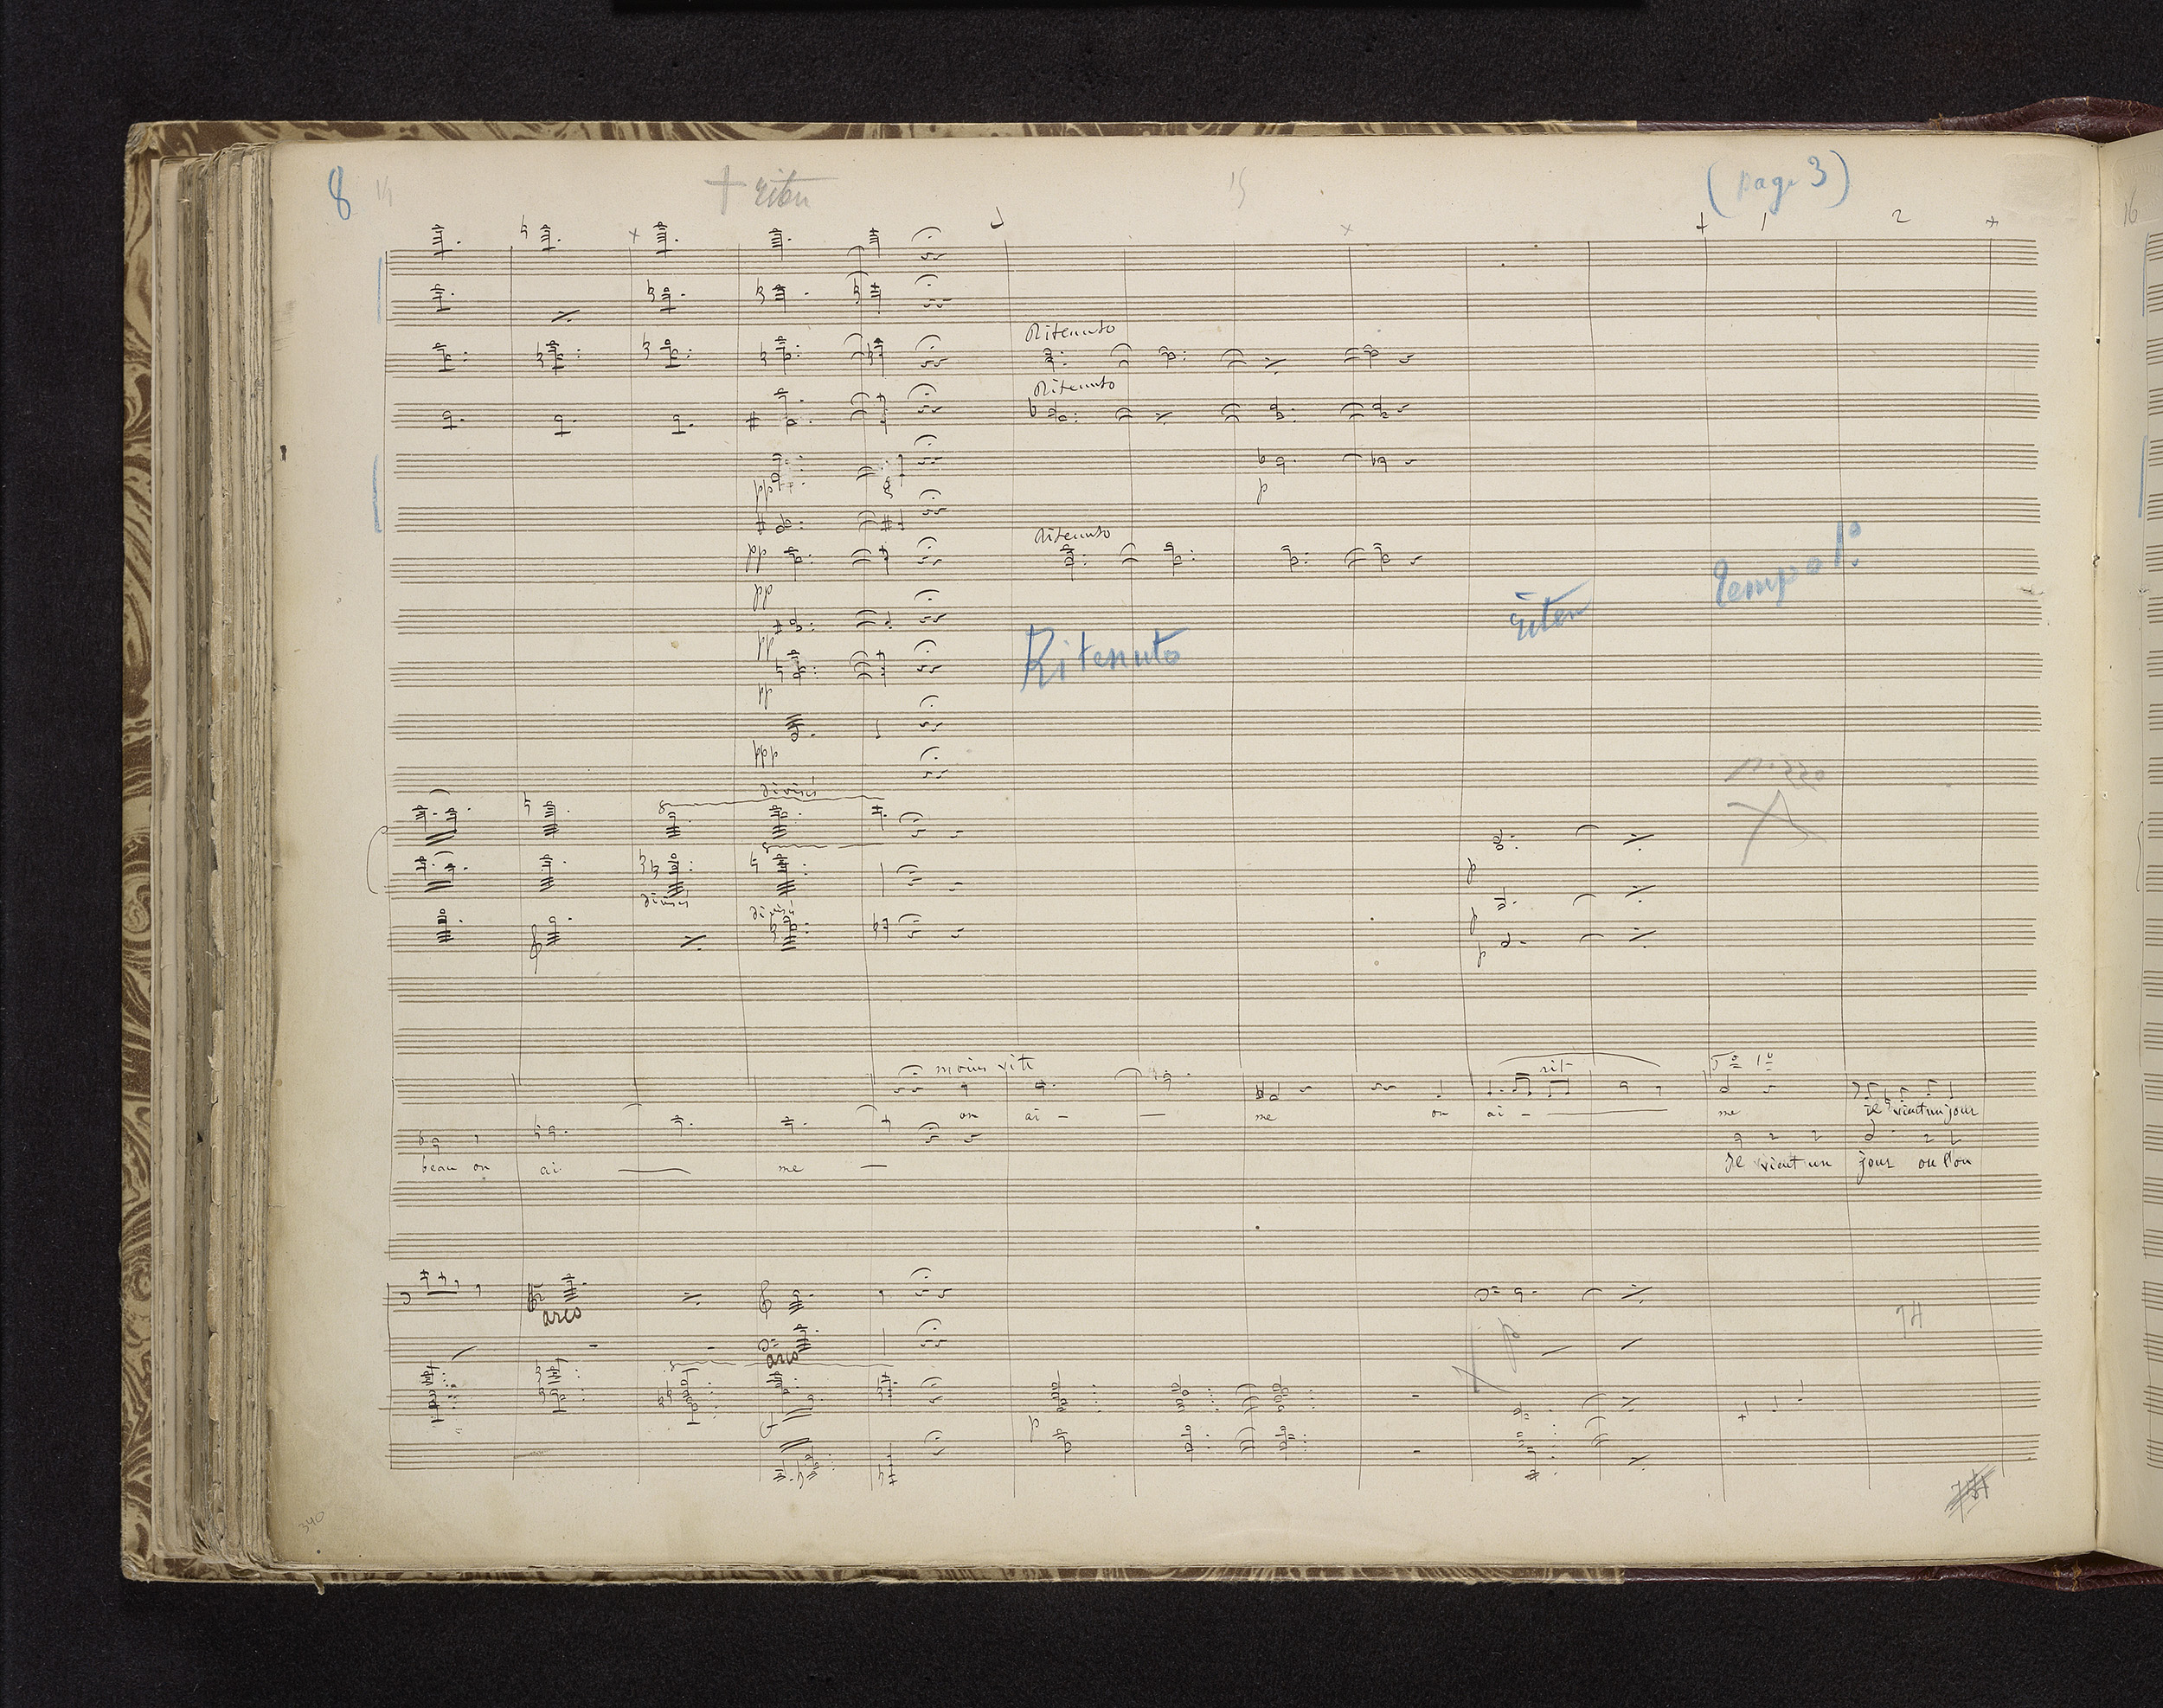 8 14 + riten 15 (page 3)
1 2
16
Ritenuto
Ritenuto
pp p
Ritenuto
pp
pp
tempo 1º
riten
pp
Ritenuto
pp
ppp
divisi
p
divisi
divisi
p
p
moins vite rit Tº 1º
on ai - — me on ai - — me il vient un jour
beau on ai — me — Il vient un jour ou l'on
arco
arco
p
340